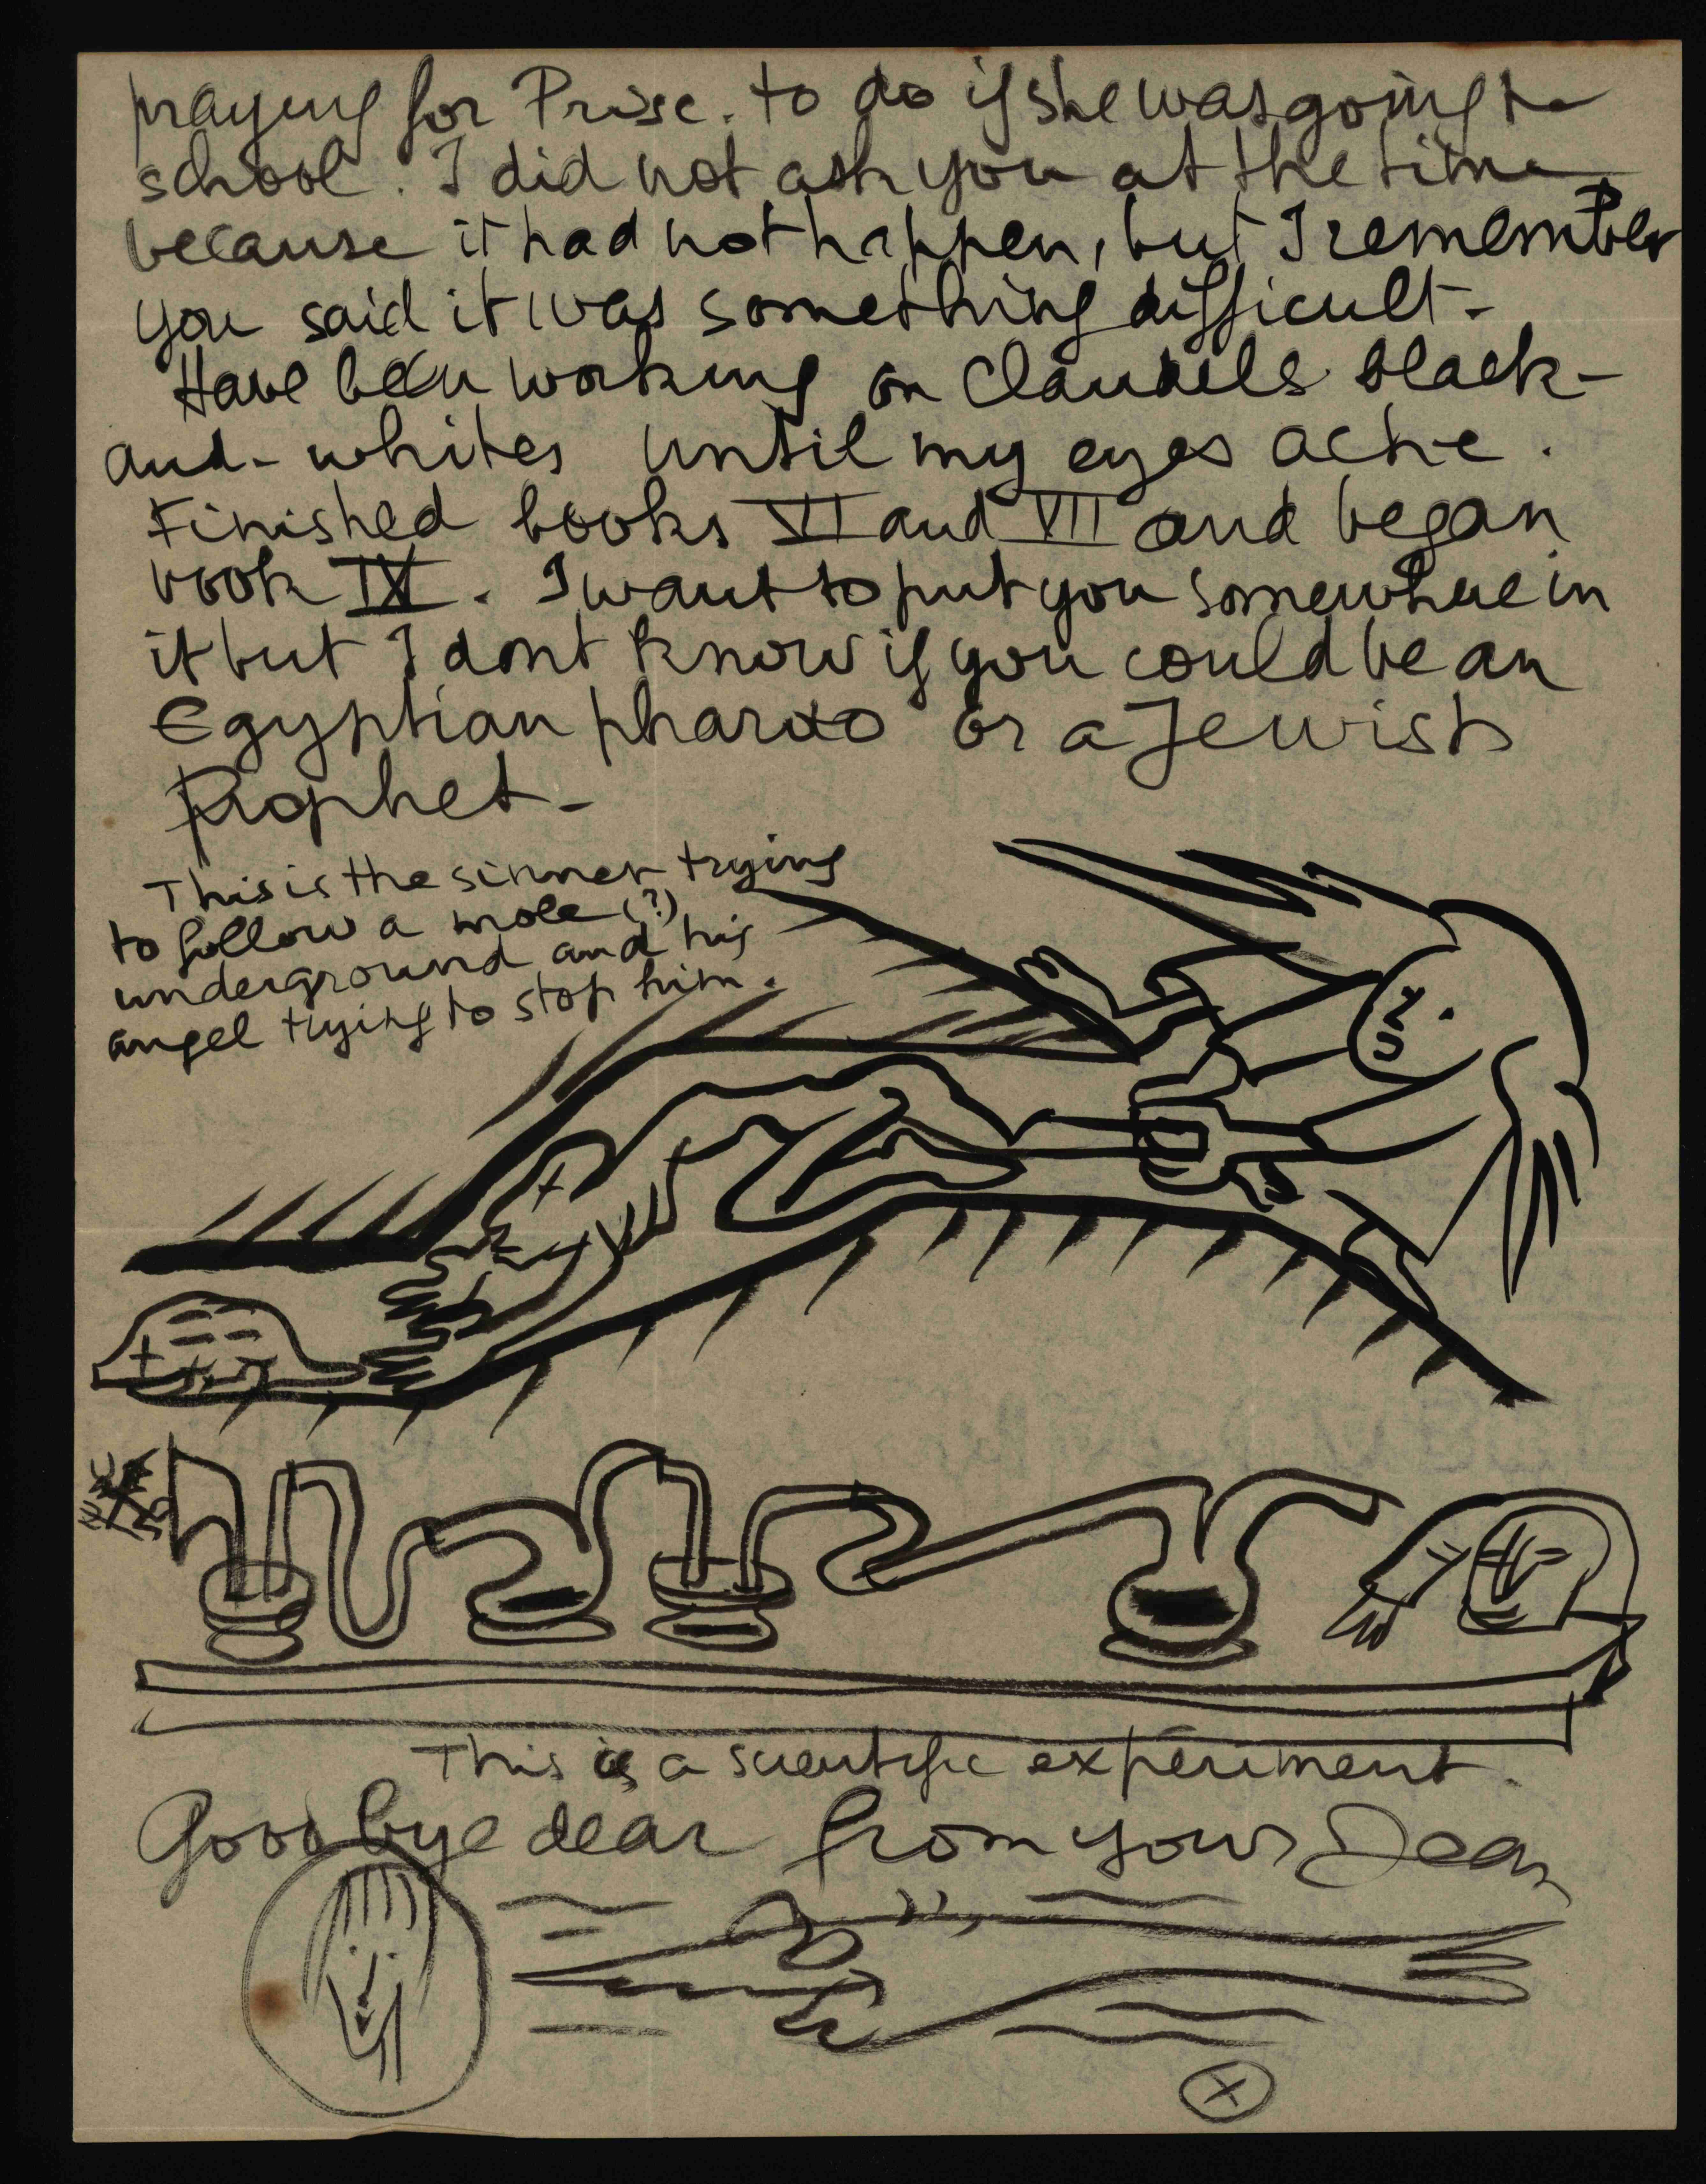 praying for Prisse. to do if she was going to
school. I did not ask you at the time
because it had not happen, but I remember
you said it was something difficult-
Have been working on Claudels black-
and-whites until my eyes ache.
Finished books VI and VII and began
book IX. I want to put you somewhere in
it but I dont know if you could be an
Egyptian pharao or a Jewish
Prophet-
This is the sinner trying
to follow a mole (?)
underground and his
angel trying to stop him.
This is a scientific experiment.
Good bye dear from your Jean